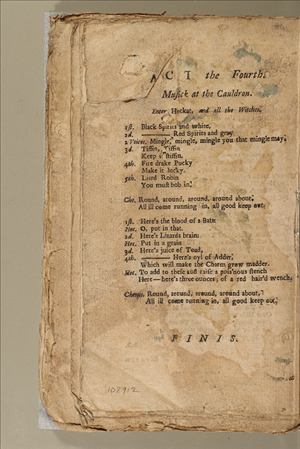 ACT the Fourth.
Musick at the Cauldron.
Enter Heckat, and all the Witches.
1st. Black Spirits and white,
2d. ——— Red Spirits and gray
2 Voices. Mingle, mingle, mingle you that mingle may.
3d. Tiffin, Tiffin
Keep it stiff in.
4th. Fire drake Pucky
Make it lucky.
5th. Liard Robin
You must bob in.
Cho. Round, around, around, around about,
All ill come running in, all good keep out.
1st. Here's the blood of a Bat:
Hec. O, put in that.
2d. Here's Lizards brain:
Hec. Put in a grain
3d. Here's juice of Toad,
4th. ——— Here's oyl of Adder,
Which will make the Charm grow madder.
Hec. To add to these and raise a pois'nous stench
Here—here's three ounces, of a red hair'd wench,
Chorus. Round, around, around, around about,
All ill come running in, all good keep out.
FINIS.
108912